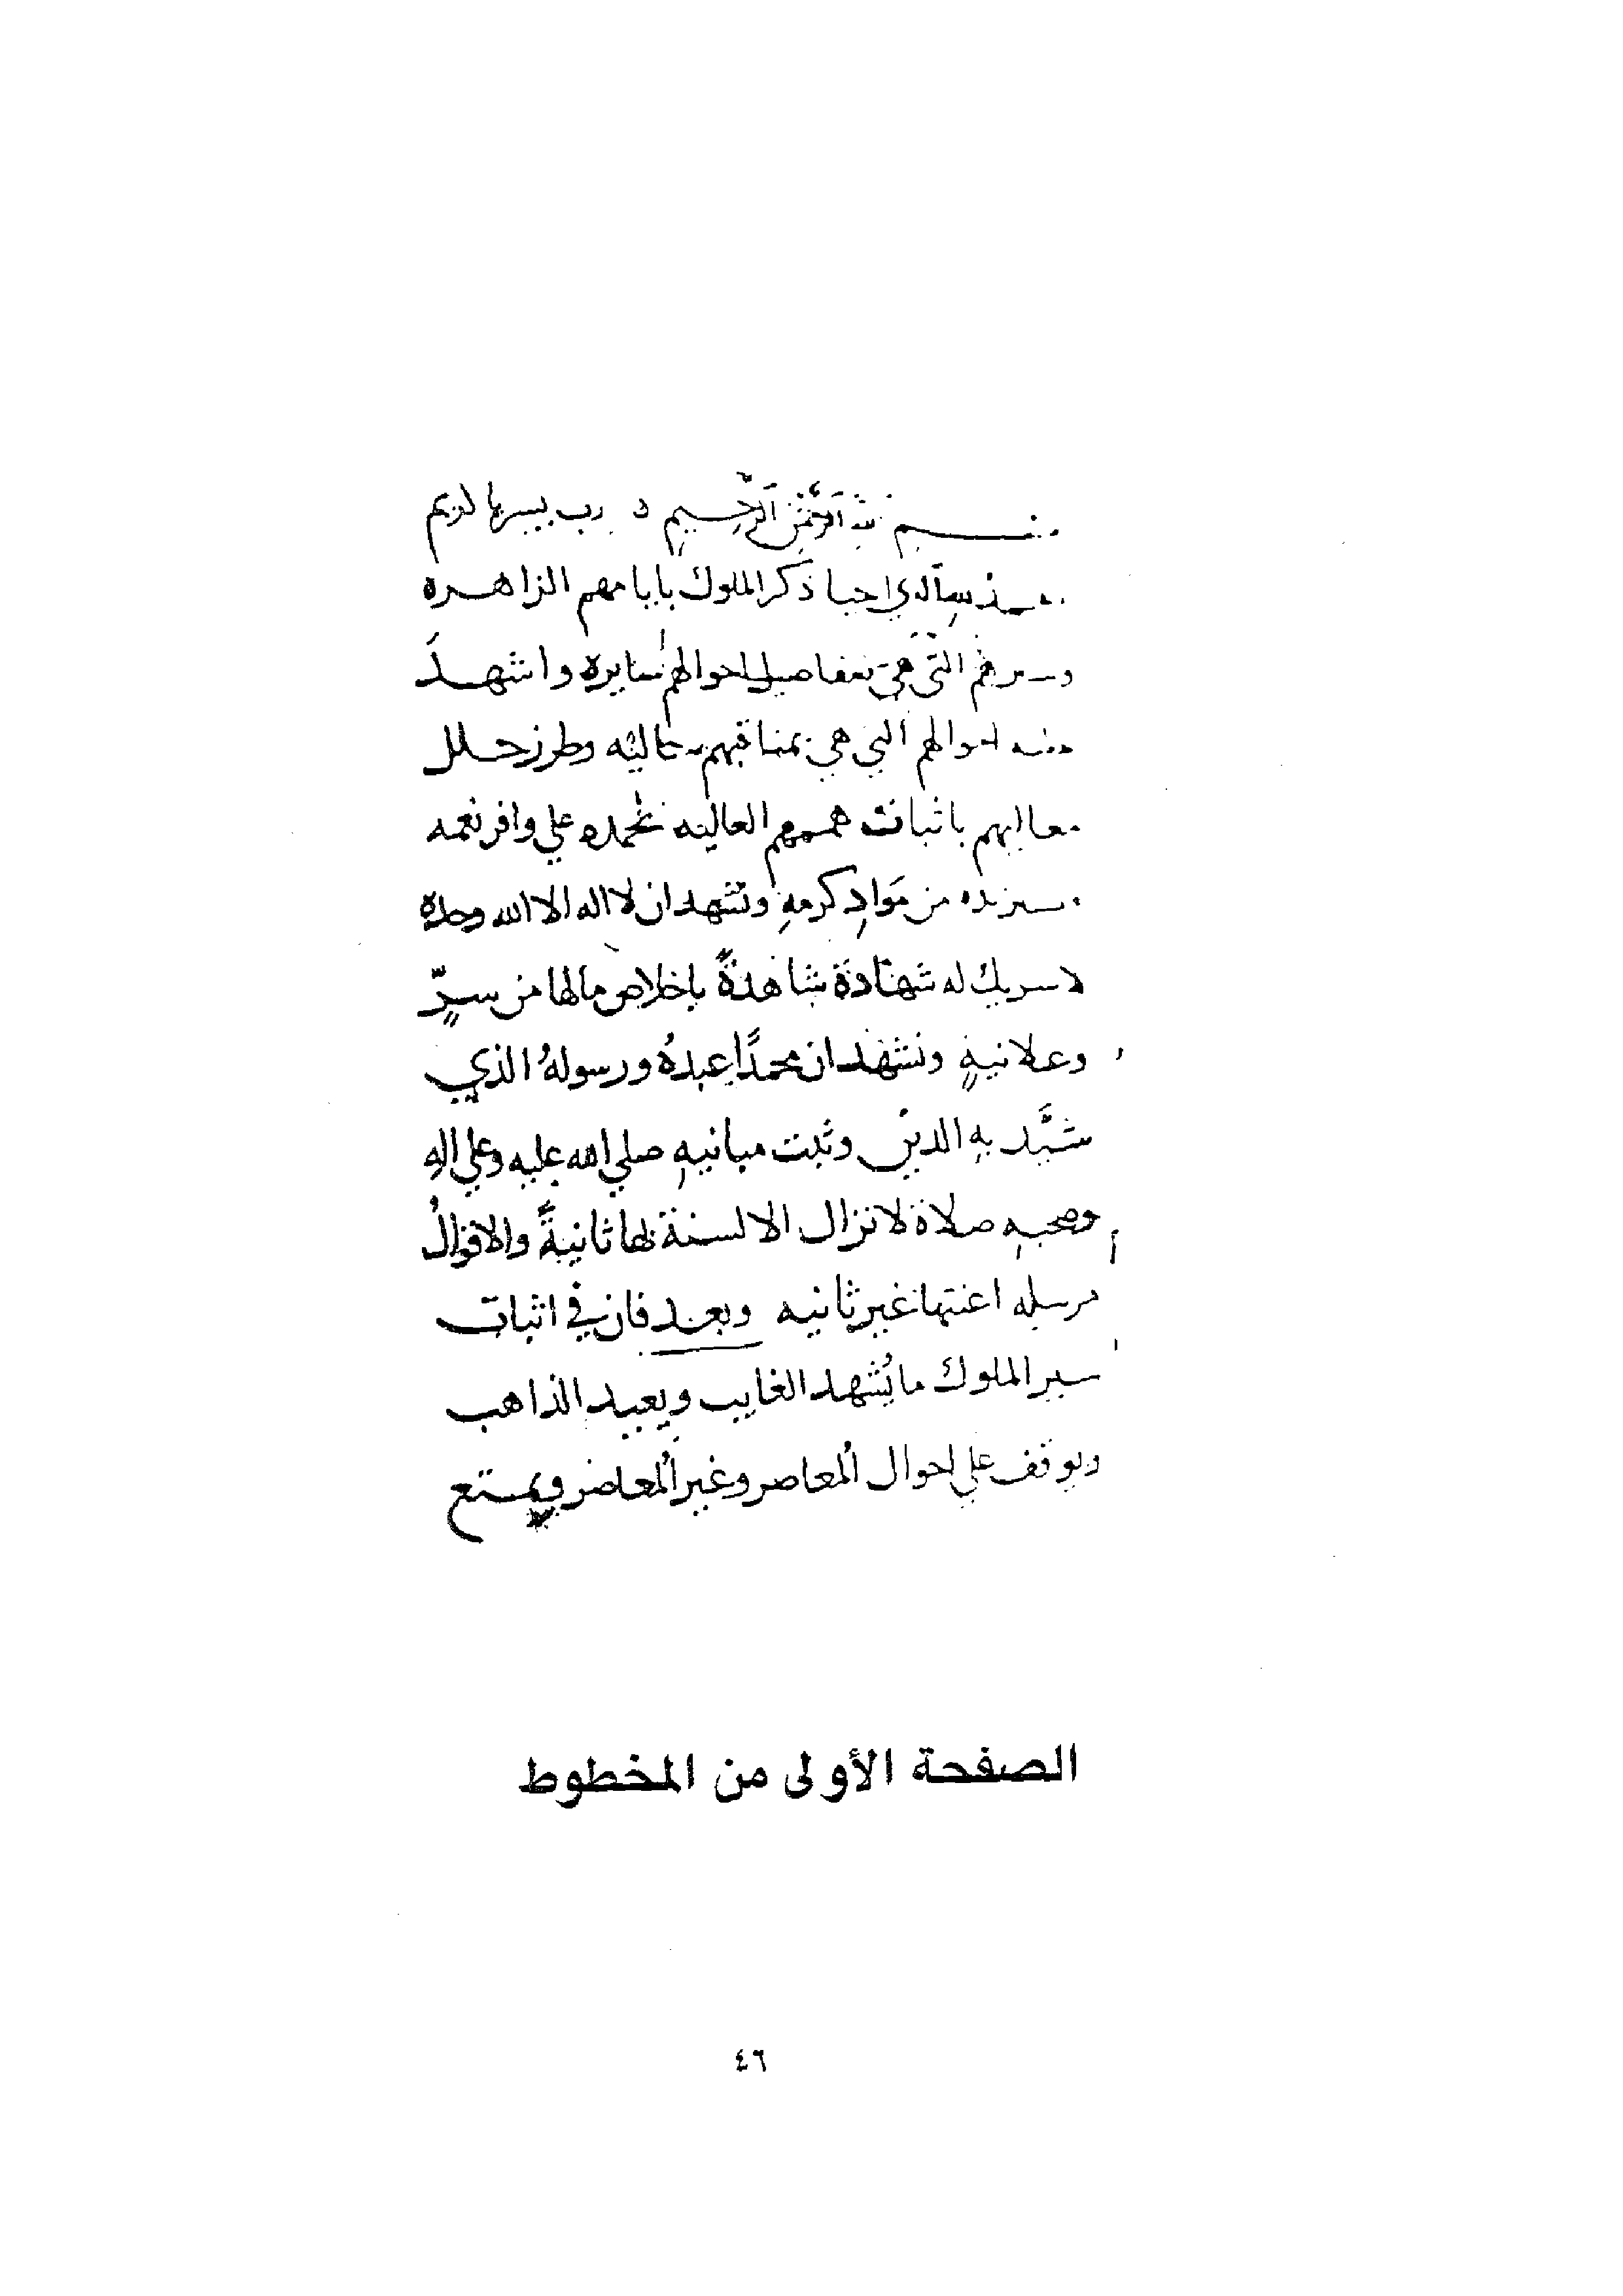 بسم الله الرحمن الرحيم رب يسر يا كريم
الحمد لله الذي احيا ذكر الملوك بايامهم الزاهره
وسيرهم التي هي بتفاصيل احوالهم سايرة واشهد
احوالهم التي هي بمناقبهم حاليه وطرز حلل
معاليهم باثبات هممهم العاليه نحمده علي وافر نعمه
ونستزيده من مواد كرمه ونشهد ان لا اله الا الله وحده
لا شريك له شهادة شاهدة باخلاص مالها من سرٍّ
وعلانيةٍ ونشهد ان محمدًا عبدهُ ورسولهُ الذي
شيَّد به الدين وثبت مبانيه صلي الله عليه وعلي اله
وصحبه صلاة لا تزال الالسنة لها ثانيةً والاقوالُ
مرسله اعنتها غير ثانيه وبعد فان في اثبات
سير الملوك ما يُشهد الغايب ويعيد الذاهب
ويوقف علي احوال المعاصر وغير المعاصر ويمتع
الصفحة الأولى من المخطوط
٤٦